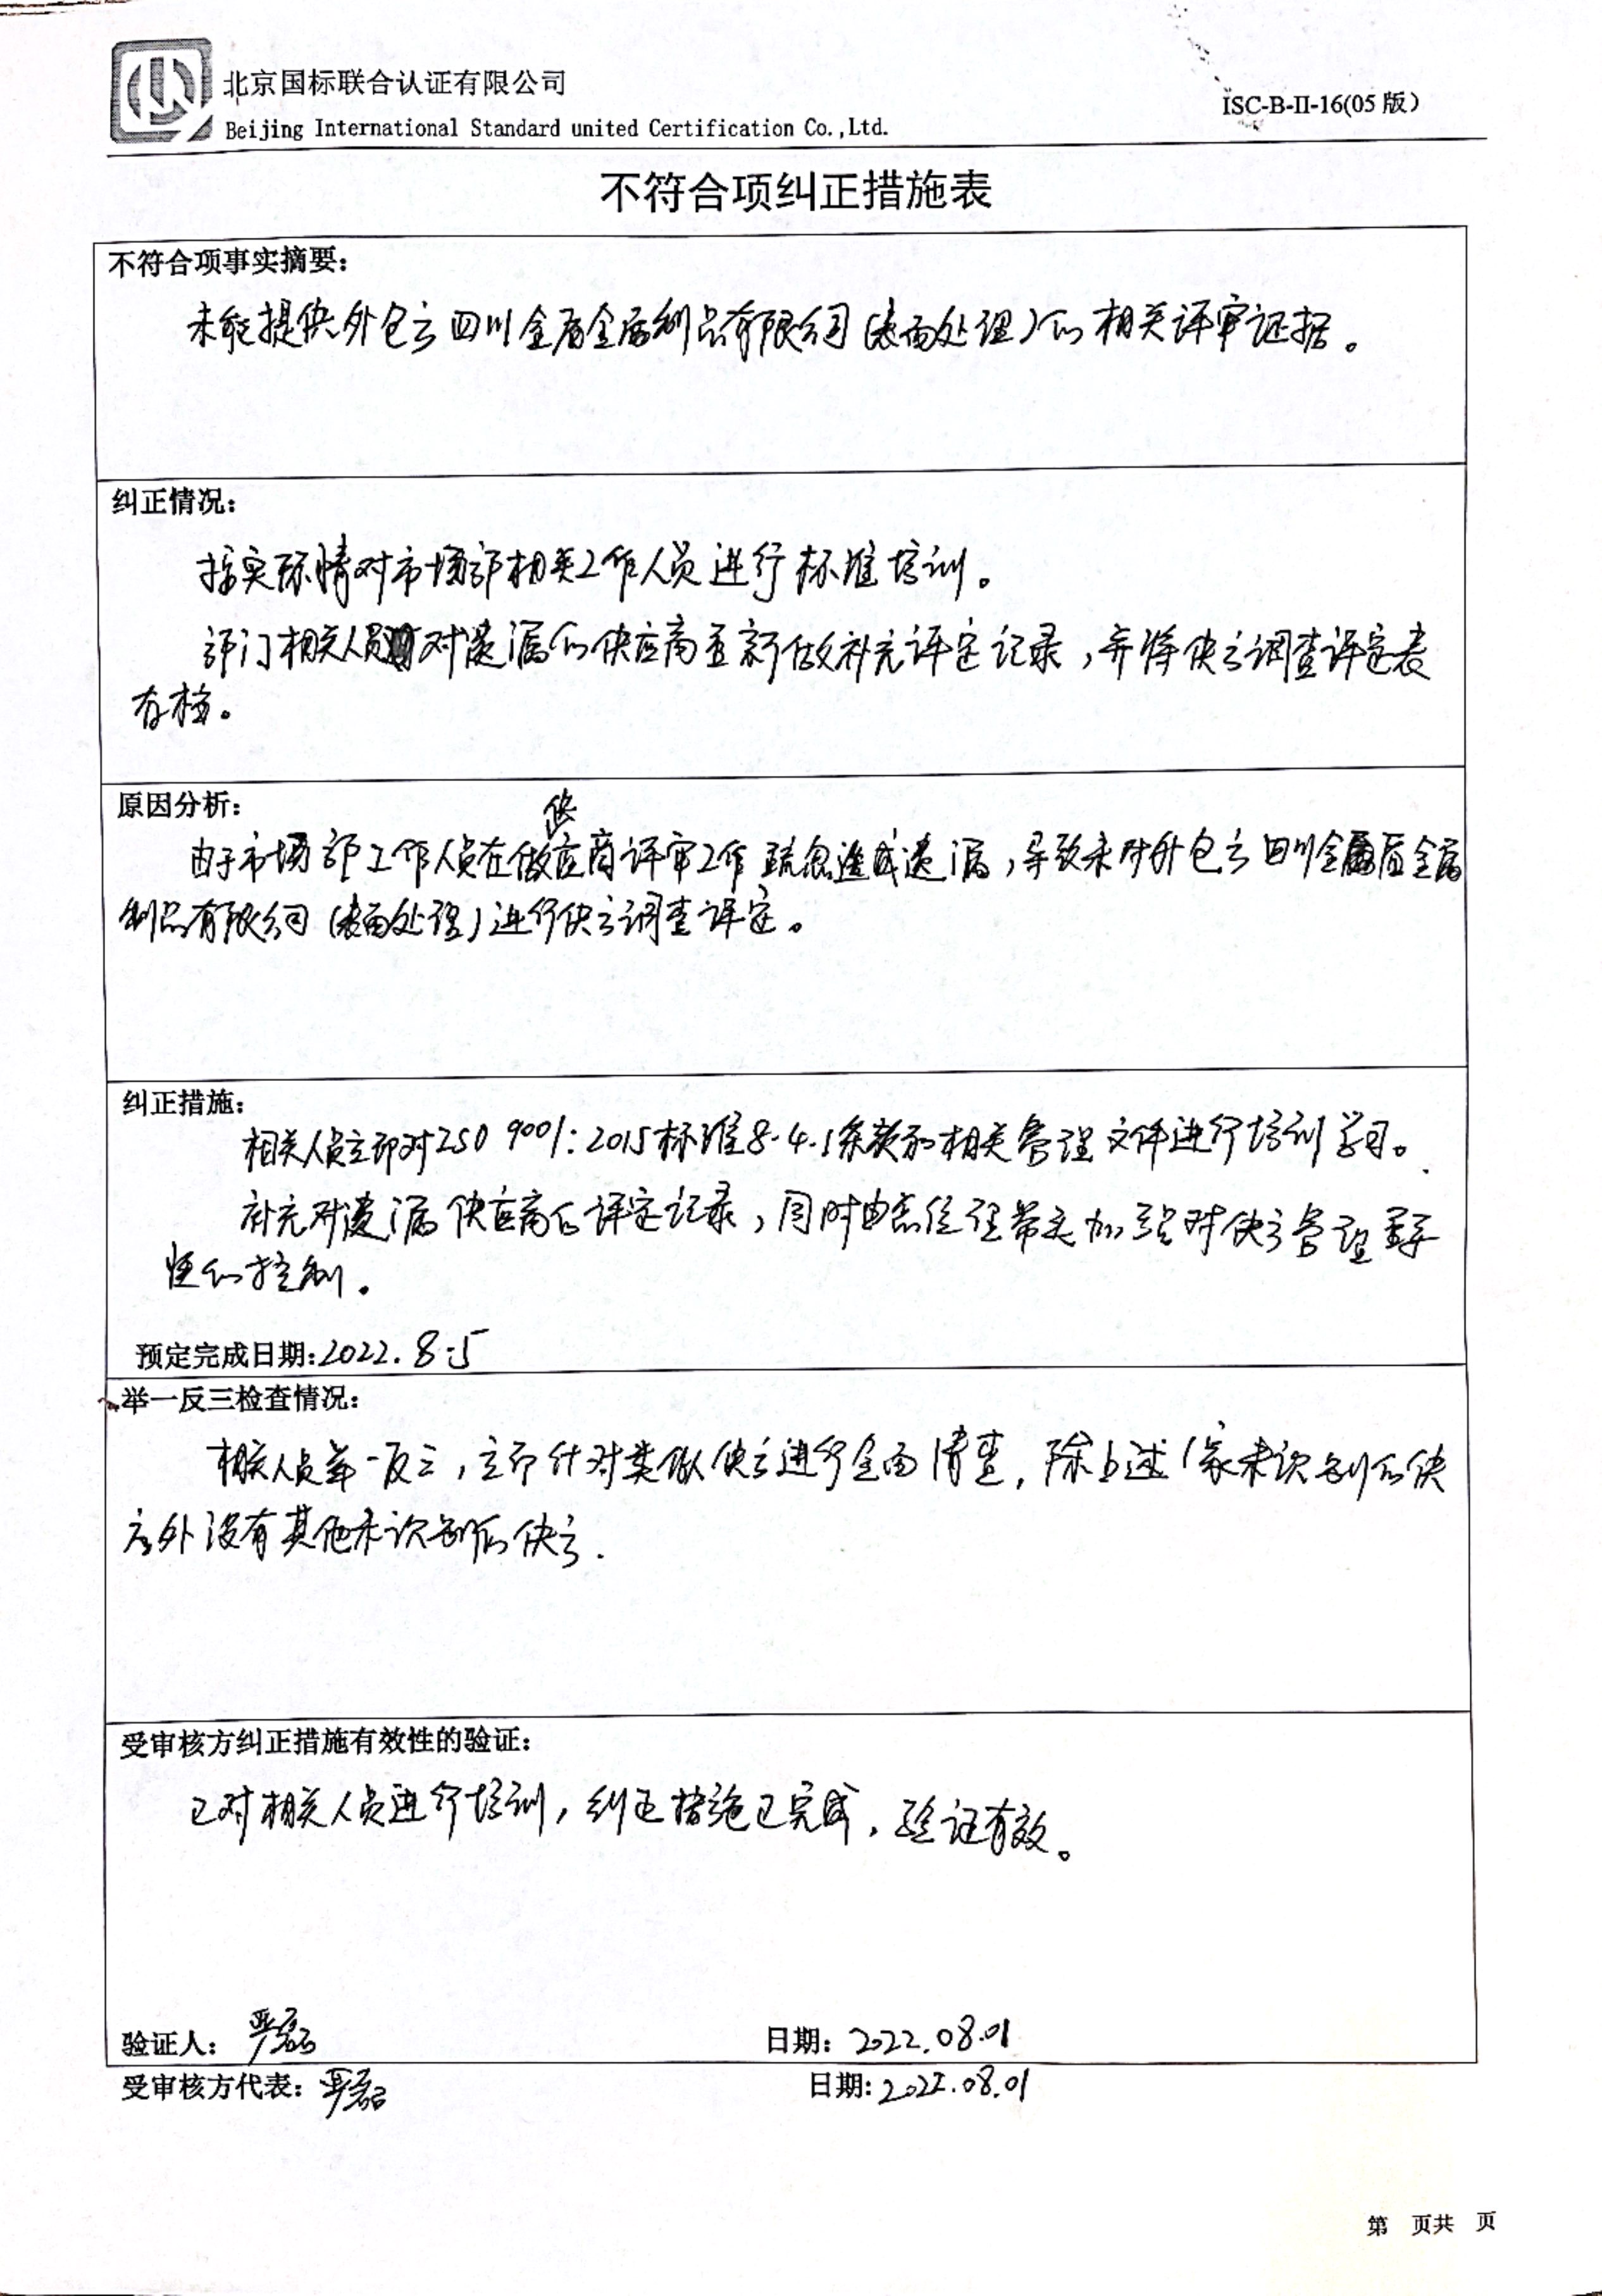 北京国标联合认证有限公司
ISC-B-II-16(05版)
Beijing International Standard united Certification Co.,Ltd.
不符合项纠正措施表
不符合项事实摘要:
未能提供外包方四川金盾金属制品有限公司(表面处理)的相关评审证据。
纠正情况:
按实际情对市场部相关工作人员进行标准培训。
部门相关人员对遗漏的供应商重新做补充评定记录,并将供方调查评定表
存档。
原因分析:
由于市场部工作人员在做供应商评审工作疏忽造成遗漏,导致未对外包方四川金盾金属
制品有限公司(表面处理)进行供方调查评定。
纠正措施:
相关人员立即对ISO 9001:2015标准8.4.1条款和相关管理文件进行培训学习。
补充对遗漏供应商的评定记录,同时由总经理带头加强对供方管理重要
性的控制。
预定完成日期:2022.8.5
举一反三检查情况:
相关人员举一反三,立即针对类似供方进行全面清查,除上述1家未识别的供
方外没有其他未识别的供方.
受审核方纠正措施有效性的验证:
已对相关人员进行培训,纠正措施已完成,验证有效。
验证人: 严磊 日期: 2022.08.01
受审核方代表: 严磊 日期:2022.08.01
第 页共 页